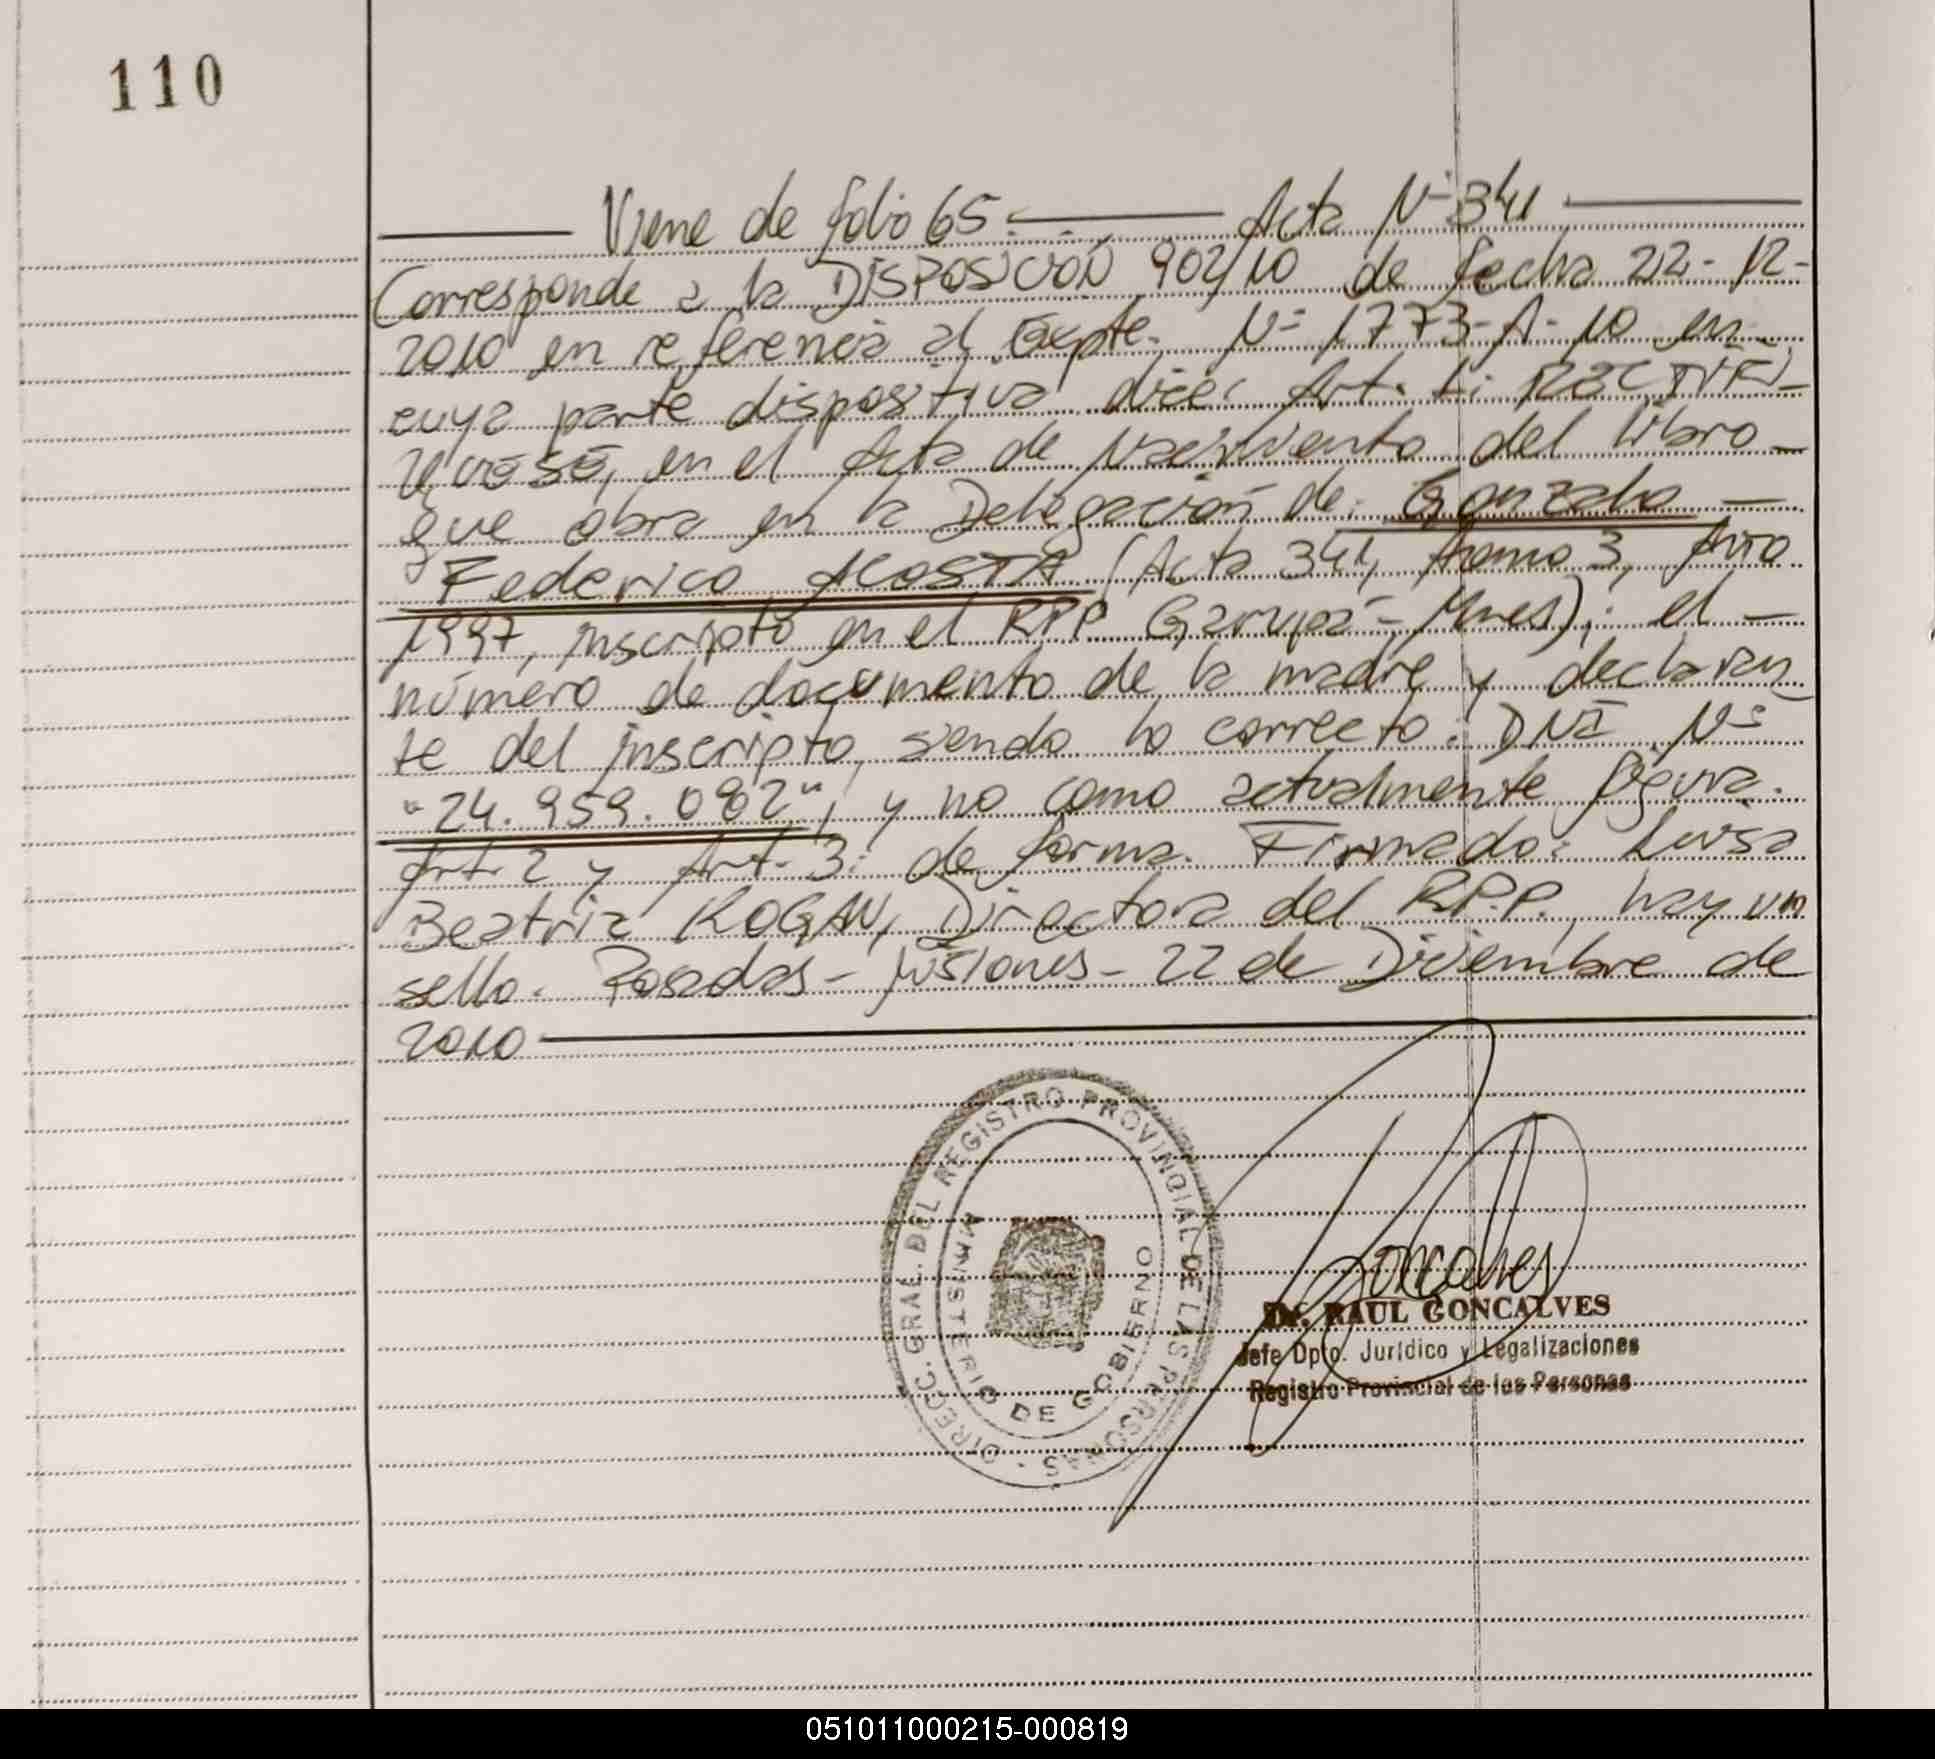 110
Viene de folio 65. Acta Nº 341
Corresponde a la DISPOSICIÓN 902/10 de fecha 22-12-
2010 en referencia al Expte. Nº 1773-A-10 en
cuya parte dispositiva dice: Art. 1: RECTIFI-
QUESE, en el Acta de Nacimiento del libro
que obra en la Delegación de: Gonzalo
Federico ACOSTA (Acta 341, Tomo 3, Año
1997, inscripto en el RPP Garupá - Mnes); el
número de documento de la madre y declaran
te del inscripto, siendo lo correcto: DNI Nº
"24.959.082", y no como actualmente figura.
Art. 2 y Art. 3: de forma. Firmado: Luisa
Beatriz ROGAN, Directora del R.P.P., hay un
sello. Posadas - Misiones - 22 de Diciembre de
2010
DIRECC. GRAL. DEL REGISTRO PROVINCIAL DE LAS PERSONAS
MINISTERIO DE GOBIERNO
Goncalves
Dr. RAUL GONCALVES
Jefe Dpto. Jurídico y Legalizaciones
Registro Provincial de las Personas
051011000215-000819